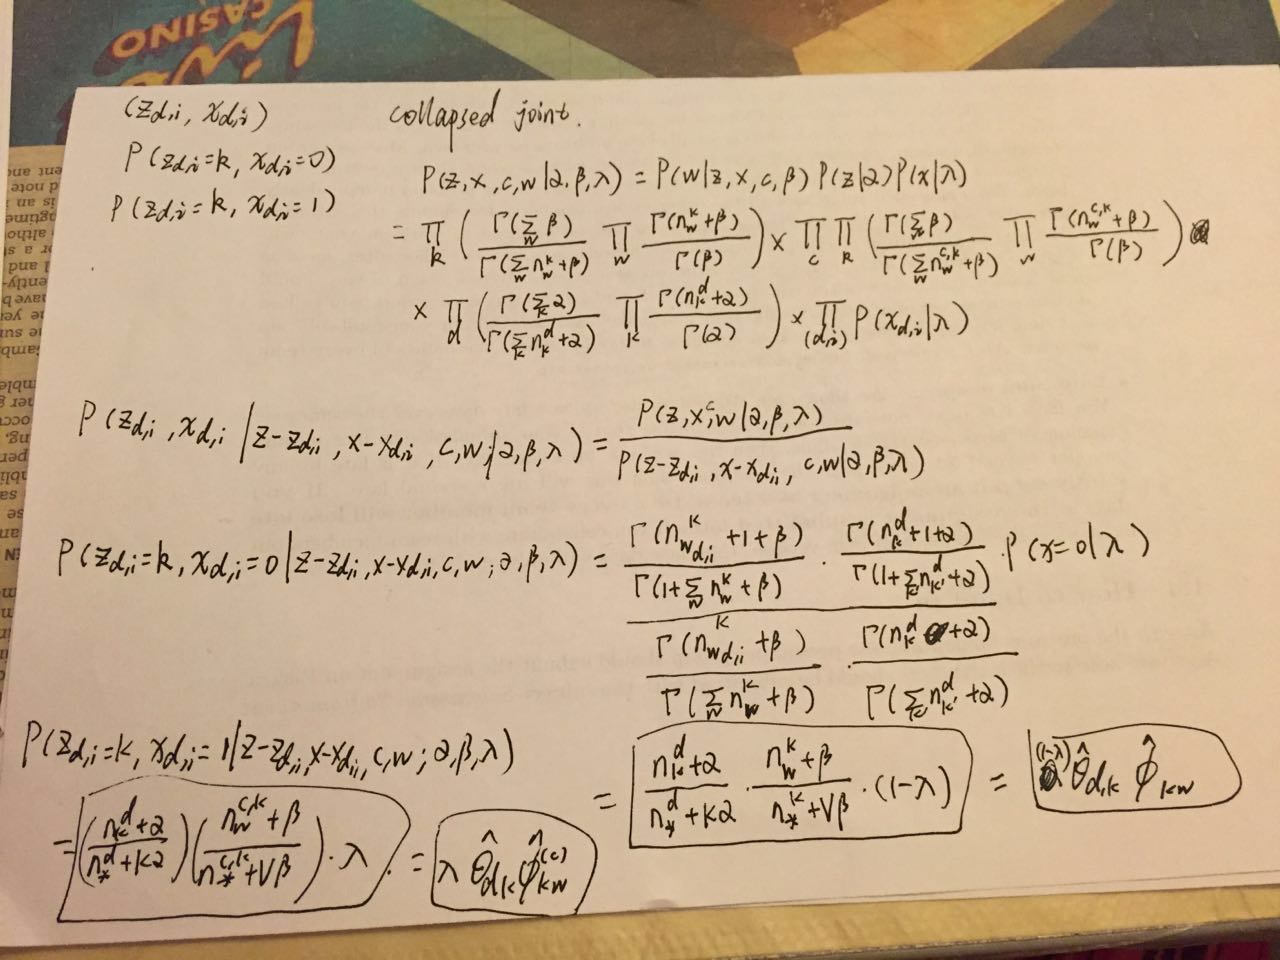 CASINO
(z_{d,i}, x_{d,i})
P(z_{d,i}=k, x_{d,i}=0)
P(z_{d,i}=k, x_{d,i}=1)
Collapsed joint.
P(z,x,c,w|α,β,λ) = P(w|z,x,c,β) P(z|α) P(x|λ)
= ∏_k ( Γ(∑_w β) / Γ(∑_w n_w^k+β) ∏_w Γ(n_w^k+β) / Γ(β) ) × ∏_c ∏_k ( Γ(∑_w β) / Γ(∑_w n_w^{c,k}+β) ∏_w Γ(n_w^{c,k}+β) / Γ(β) )
× ∏_d ( Γ(∑_k α) / Γ(∑_k n_k^d+α) ∏_k Γ(n_k^d+α) / Γ(α) ) × ∏_{(d,i)} P(x_{d,i}|λ)
P(z_{d,i}, x_{d,i} | z-z_{d,i}, x-x_{d,i}, c,w; α,β,λ) = P(z,x,c,w|α,β,λ) / P(z-z_{d,i}, x-x_{d,i}, c,w|α,β,λ)
P(z_{d,i}=k, x_{d,i}=0 | z-z_{d,i}, x-x_{d,i}, c,w; α,β,λ) = Γ(n_{w_{d,i}}^k+1+β) / Γ(1+∑_w n_w^k+β) · Γ(n_k^d+1+α) / Γ(1+∑_{k'} n_{k'}^d+α) · P(x=0|λ)
Γ(n_{w_{d,i}}^k+β) / Γ(∑_w n_w^k+β) · Γ(n_k^d+α) / Γ(∑_{k'} n_{k'}^d+α)
= (n_k^d+α) / (n_*^d+Kα) · (n_w^k+β) / (n_*^k+Vβ) · (1-λ) = (1-λ) θ̂_{d,k} φ̂_{kw}
P(z_{d,i}=k, x_{d,i}=1 | z-z_{d,i}, x-x_{d,i}, c,w; α,β,λ)
= ((n_k^d+α) / (n_*^d+Kα)) ((n_w^{c,k}+β) / (n_*^{c,k}+Vβ)) · λ = λ θ̂_{d,k} φ̂_{kw}^{(c)}